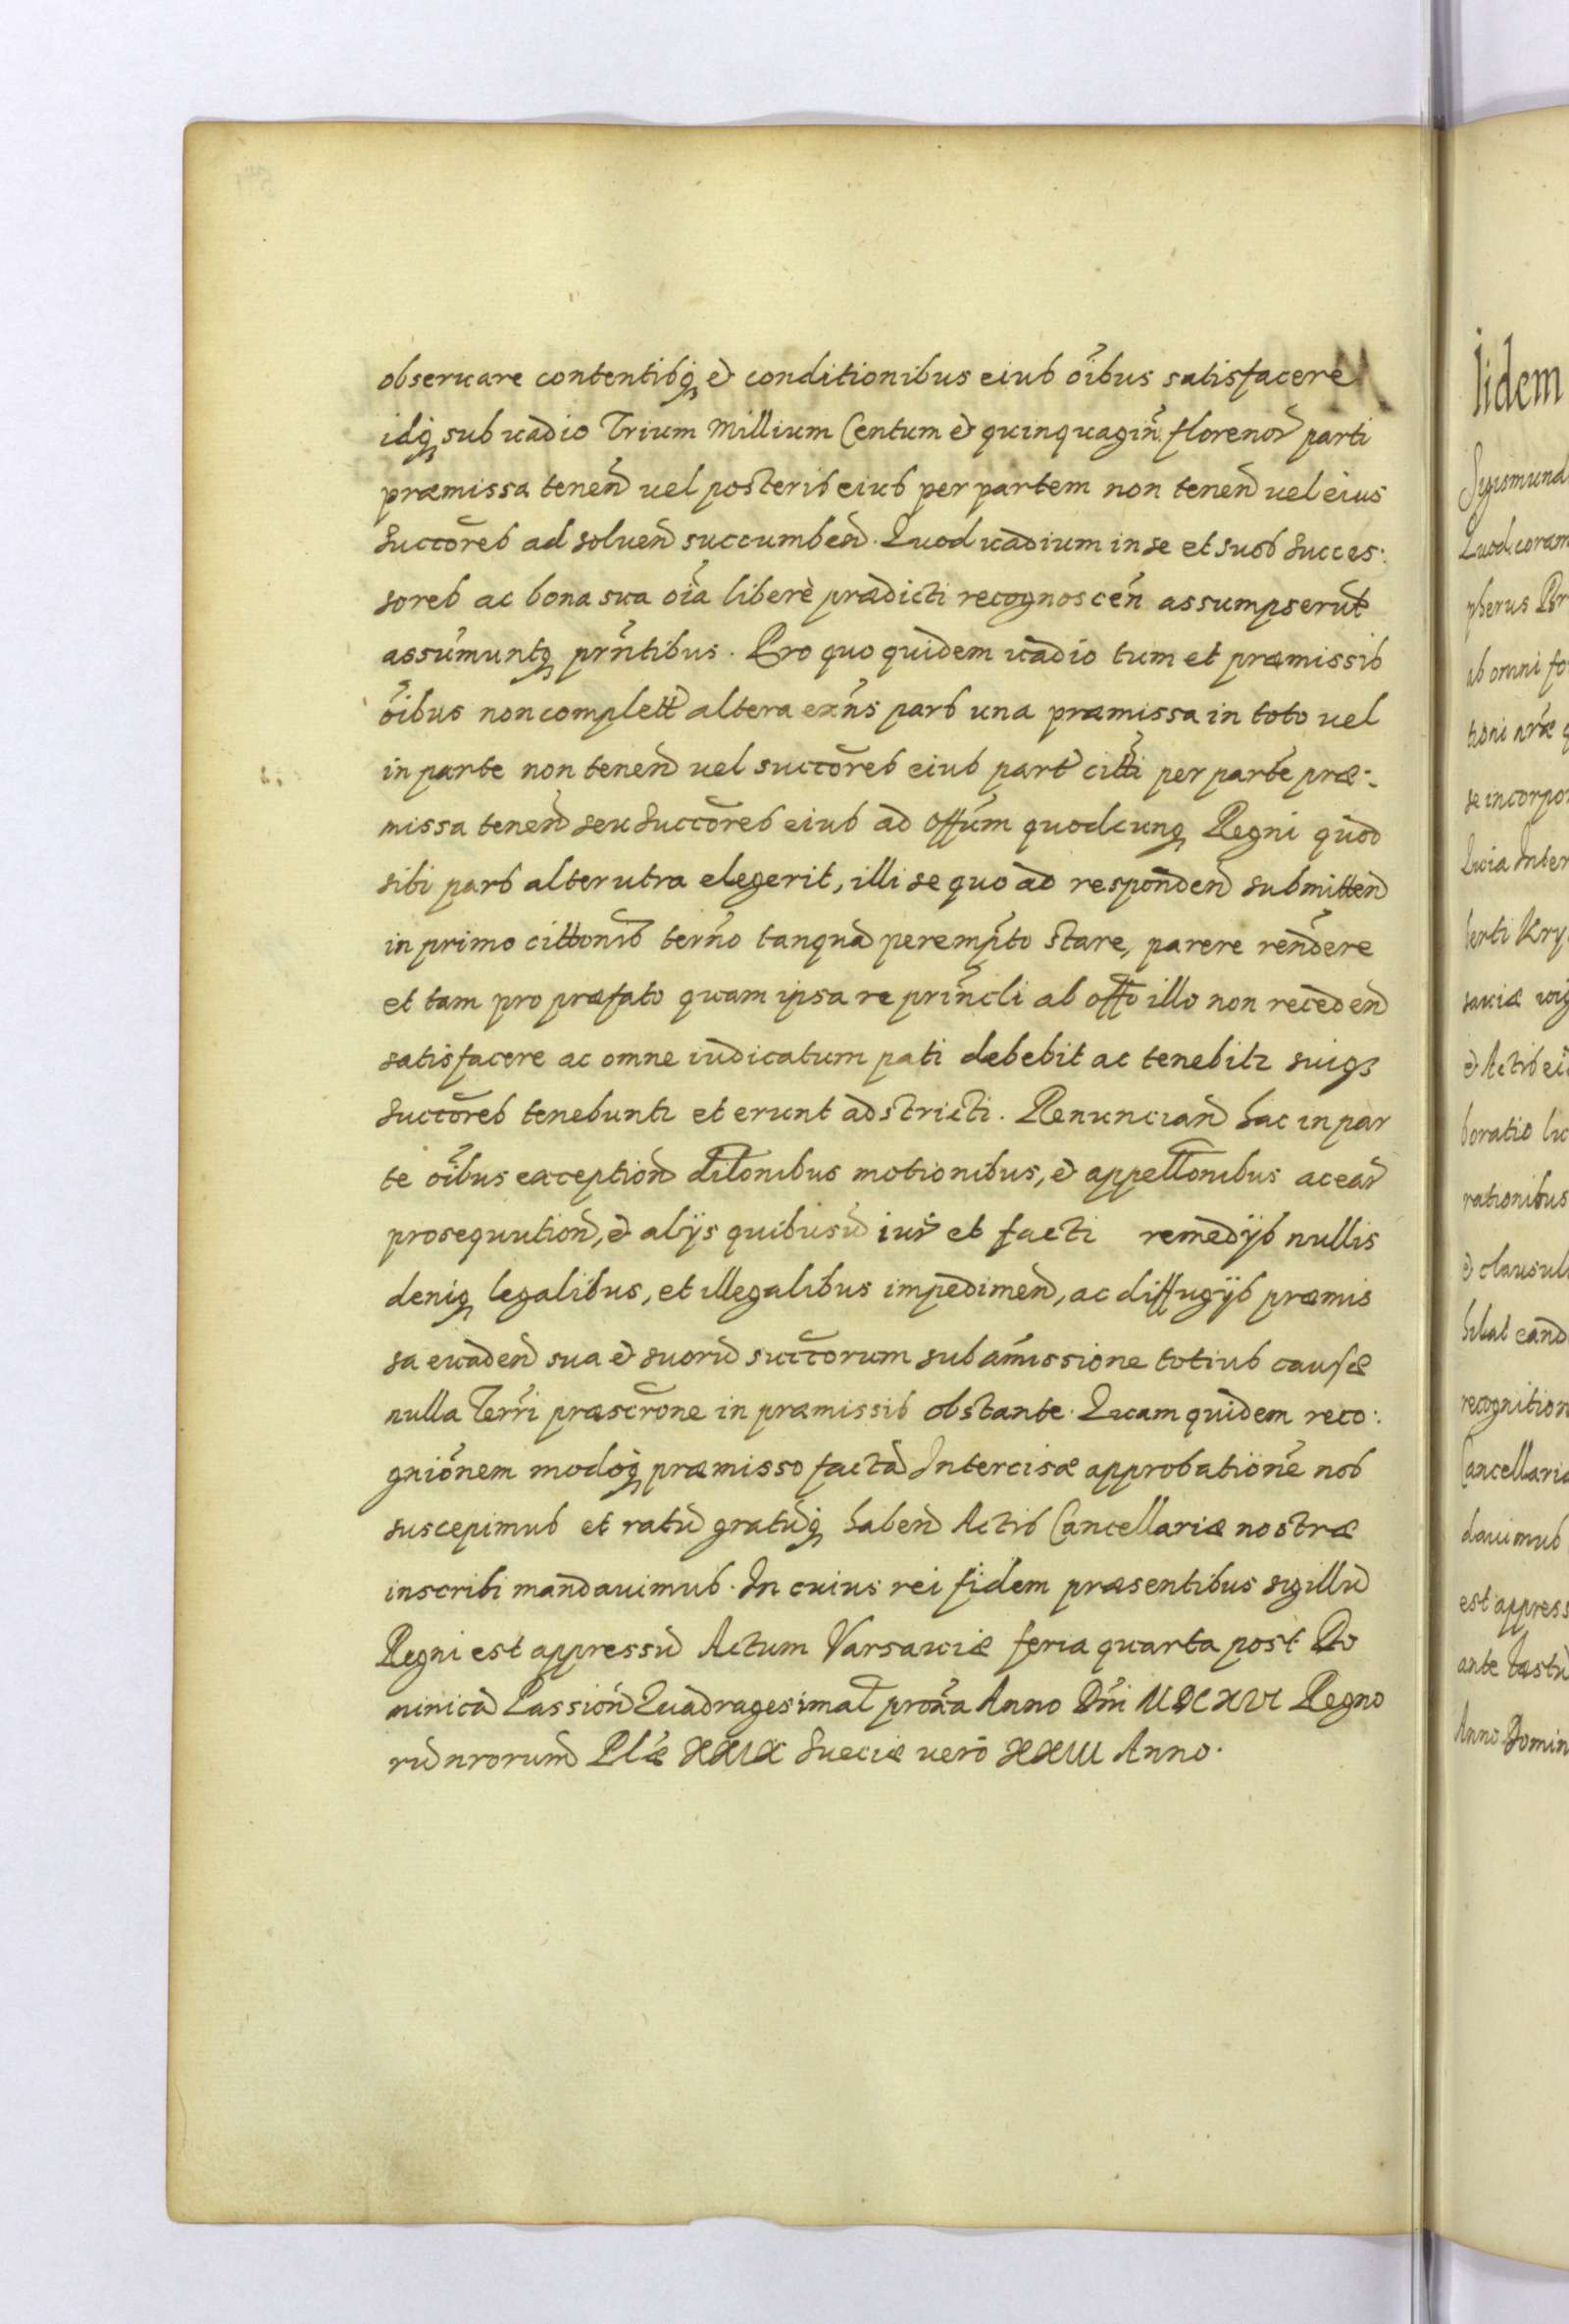 obseruare contentisq; et conditionibus eius oı̃bus satisfacere
idq; sub uadio Trium Millium Centum et quinquagiñ florenor̃ parti
præmissa teneñ uel posteris eius per partem non teneñ uel eius
succõres ad solueñ succumbeñ. Quod uadium in se et suos Succes:
sores ac bona sua oı̃a liberè prædicti recognosceñ assumpserũt
assũmuntq; prñtibus. Pro quo quidem uadio tum et præmissis
oı̃bus non complett̃ altera exñs pars una præmissa in toto uel
in parte non teneñ uel succõres eius part̃ citt̃i per partẽ præ:
missa teneñ seu Succõres eius ad off̃um quodcunq; Regni quod
sibi pars alterutra elegerit, illi se quo ad respondeñ submitteñ
in primo citt̃onis term̃o tanquã perempt̃o stare, parere reñdere
et tam pro præfato quam ipsa re prin̄cli ab off̃o illo non recedeñ
satisfacere ac omne iudicatum pati debebit ac tenebitr suiqз
Succõres tenebuntr et erunt adstricti. Renunciañ hac in par
te oı̃bus exceptioñ dil̃onibus motionibus, et appell̃onibus ac ear̃
prosequutioñ, et alijs quibusũ iur̃ et facti remedijs nullis
deniq; legalibus, et illegalibus impedimeñ, ac diffugijs præmis
sa euadeñ sua et suorũ succ̃orum sub am̃issione totius causæ
nulla Terr̃i præscr̃one in præmissis obstante. Quam quidem reco:
gniõnem modoq; præmisso factã Intercisæ approbationẽ nos
suscepimus et ratũ gratũq; habeñ Actis Cancellariæ nostræ
inscribi mandauimus. In cuius rei fidem præsentibus sigillũ
Regni est appressũ Actum Varsauiæ feria quarta post Do
minicã Passioñ Quadragesimal̃ prox̃a Anno Dñi MDCXVI Regno
rũ nrorum̃ Pl̃æ XXIX Sueciæ uerõ XXIII Anno.
Iidem
Quod coram
ab omni fo
se incorpo
rationibus
recognition
Cancellaria
dauimus
est appress
Anno Domin